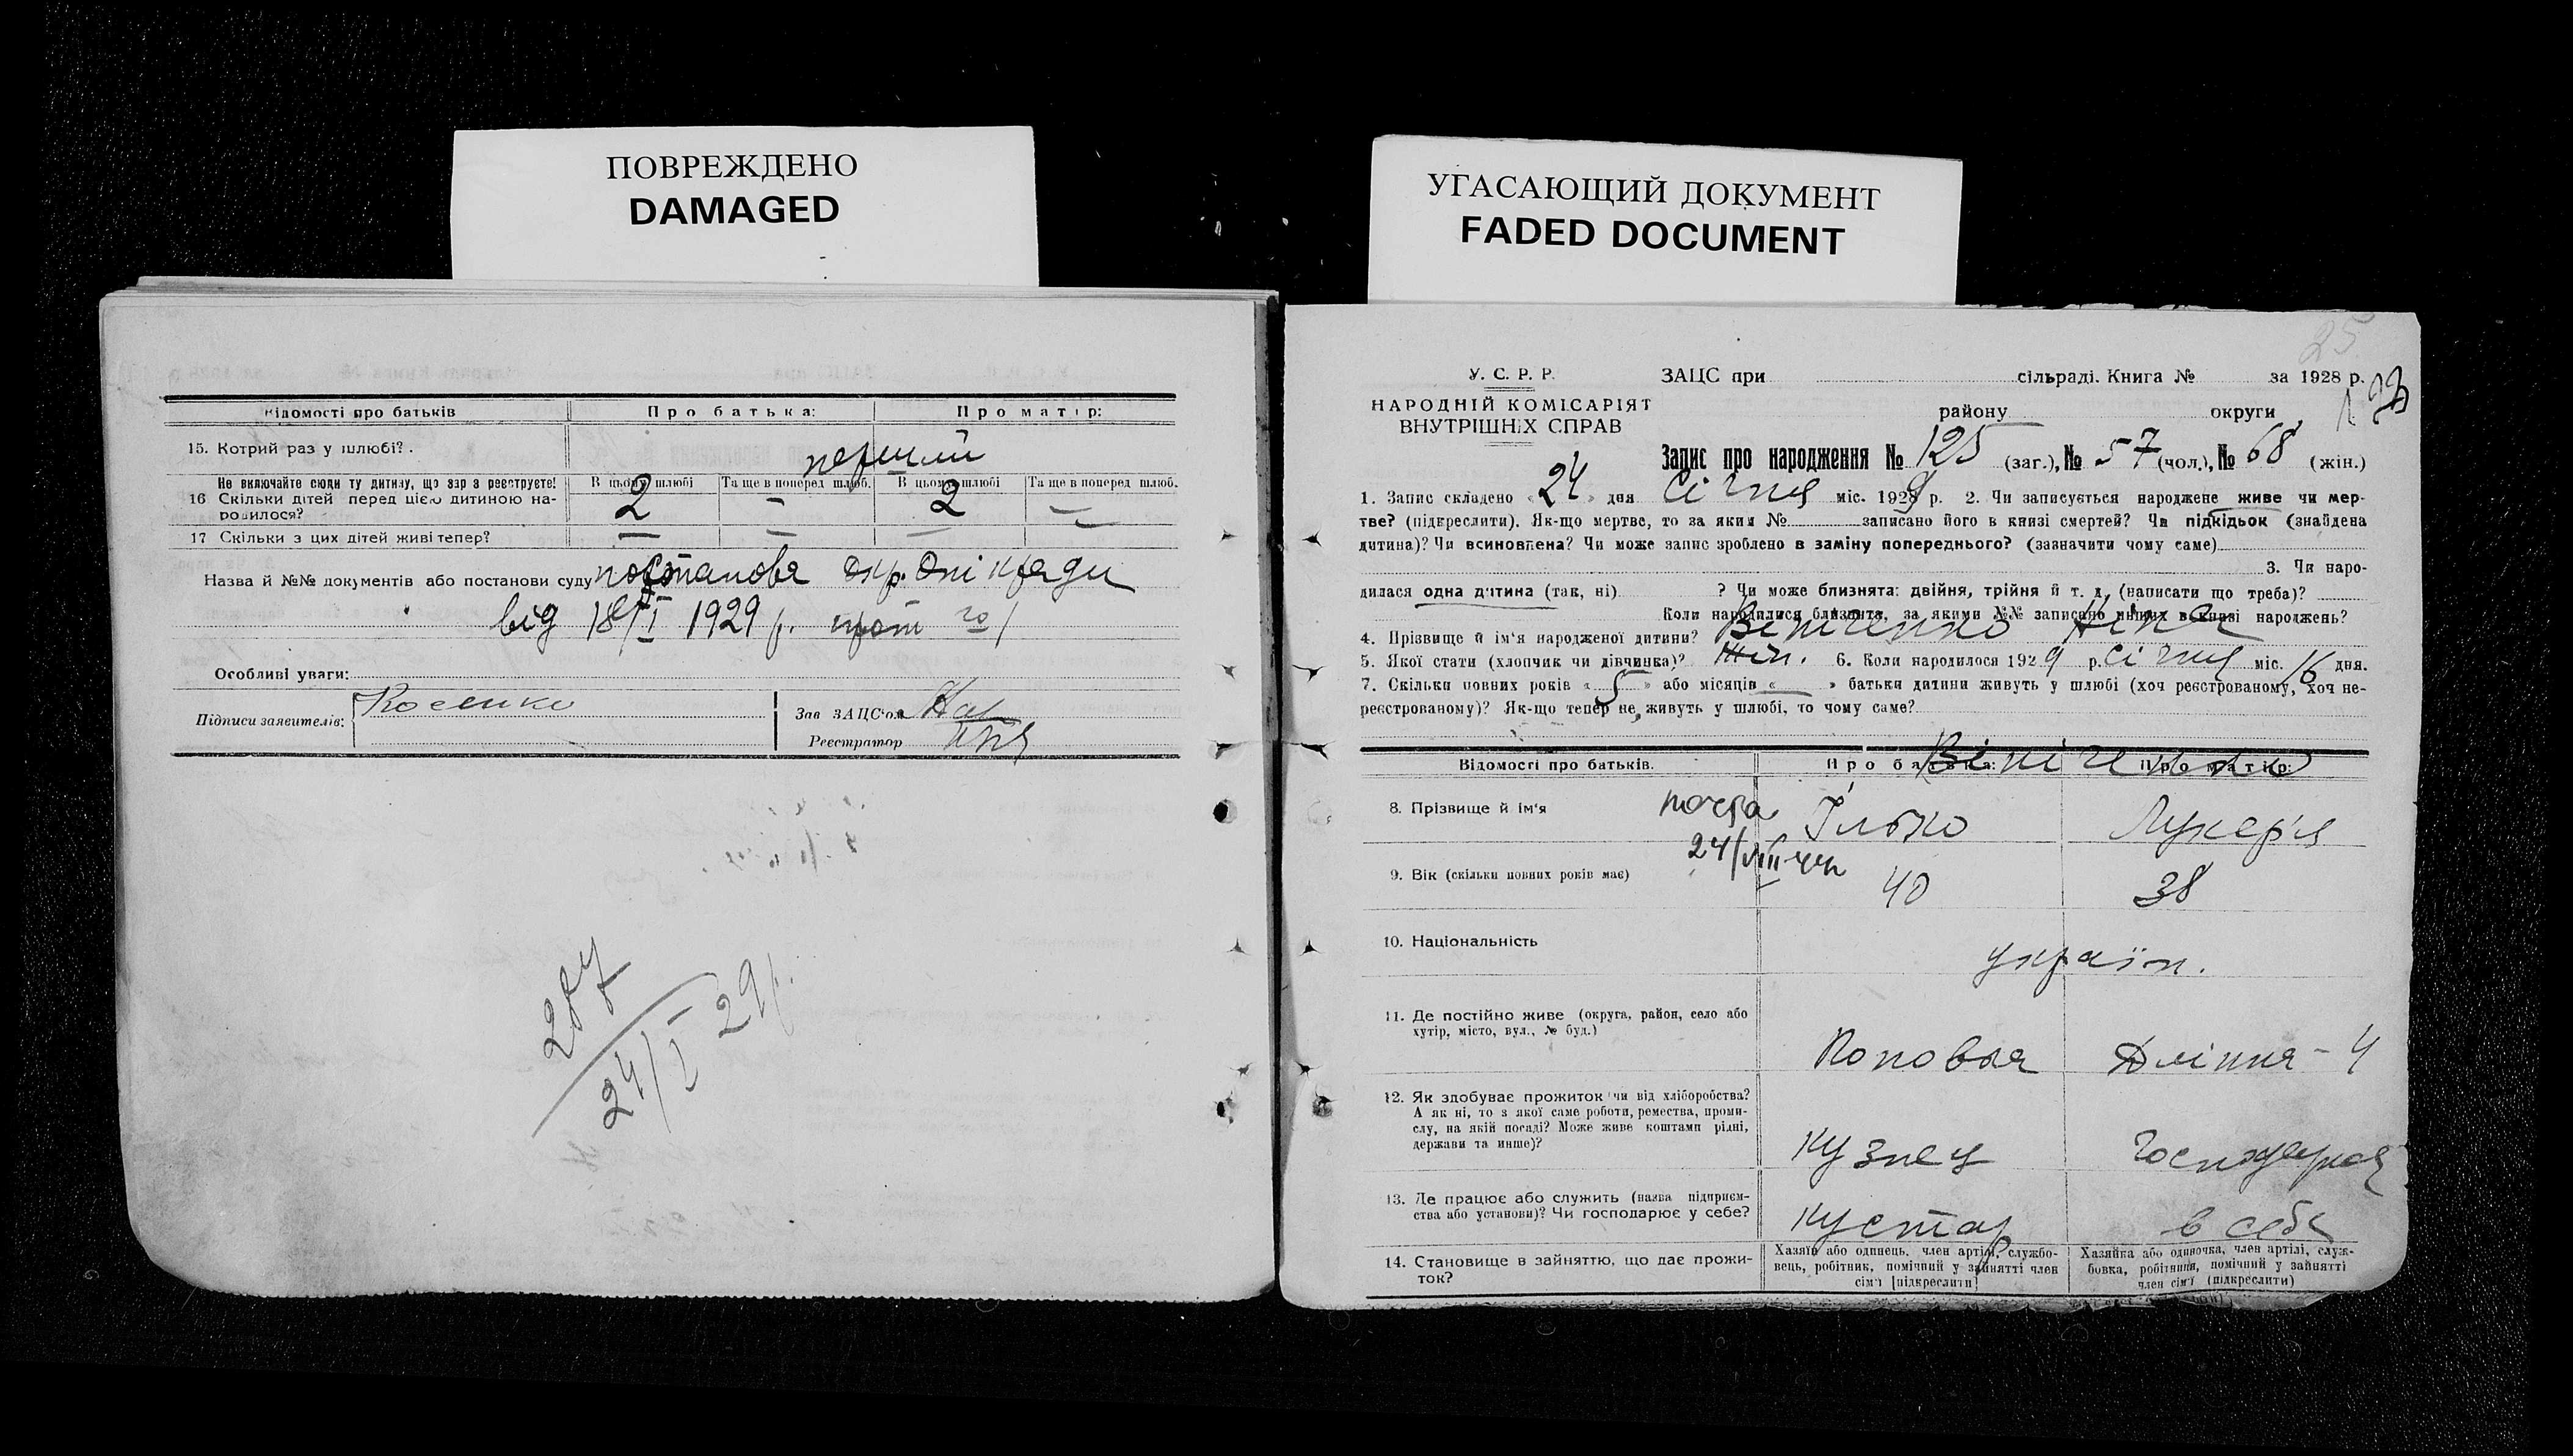 ПОВРЕЖДЕНО
DAMAGED
УГАСАЮЩИЙ ДОКУМЕНТ
FADED DOCUMENT
Відомості про батьків Про батька: Про матір:
15. Котрий раз у шлюбі?. перший
Не включайте сюди ту дитину, що зар з реєструєте! В цьому шлюбі Та ще в поперед шлюб. В цьому шлюбі Та ще в поперед шлюб.
16 Скільки дітей перед цією дитиною на- 2 — 2 —
родилося?
17 Скільки з цих дітей живі тепер? — — — —
Назва й №№ документів або постанови суду постанова окр.
від 18/I 1929 р.
Особливі уваги:
Підписи заявителів: Косенко Зав ЗАЦС'ом
Реєстратор
287
24/I 29 р.
25
У. С. Р. Р. ЗАЦС при сільраді. Книга № за 1928 р.
НАРОДНІЙ КОМІСАРІЯТ району округи
ВНУТРІШНІХ СПРАВ
Запис про народження № 125 (заг.), № 57 (чол.), № 68 (жін.)
1. Запис складено « 24 » дня Січня міс. 1929 р. 2. Чи записується народжене живе чи мер-
тве? (підкреслити). Як-що мертве, то за яким № записано його в книзі смертей? Чи підкідьок (знайдена
дитина)? Чи всиновлена? Чи може запис зроблено в заміну попереднього? (зазначити чому саме)
3. Чи наро-
дилася одна дитина (так, ні) ? Чи може близнята: двійня, трійня й т. д. (написати що треба)?
Коли народилися близнята, за якими №№ записано инших в книзі народжень?
4. Прізвище й ім'я народженої дитини? Ніна
5. Якої стати (хлопчик чи дівчинка)? Жін. 6. Коли народилося 1929 р. Січня міс. 16 дня.
7. Скільки повних років « 5 » або місяців « — » батьки дитини живуть у шлюбі (хоч реєстрованому, хоч не-
реєстрованому)? Як-що тепер не живуть у шлюбі, то чому саме?
Відомості про батьків. Про батька: Про матір:
Вініченко
8. Прізвище й ім'я Ілько Лукер'я
24/VIII-44
9. Вік (скільки повних років має) 40 38
10. Національність україн.
11. Де постійно живе (округа, район, село або
хутір, місто, вул., № буд.) Попова 4
12. Як здобуває прожиток чи від хліборобства?
А як ні, то з якої саме роботи, ремества, проми-
слу, на якій посаді? Може живе коштами рідні,
держави та инше)? Кузнец
13. Де працює або служить (назва підприєм-
ства або установи)? Чи господарює у себе? Кустар в себе
14. Становище в зайняттю, що дає прожи-
ток?
Хазяїн або одинець, член артілі, службо-
вець, робітник, помічний у зайнятті член
сім'ї [підкреслити]
Хазяйка або одиночка, член артілі, служ-
бовка, робітниця, помічний у зайнятті
член сім'ї (підкреслити)